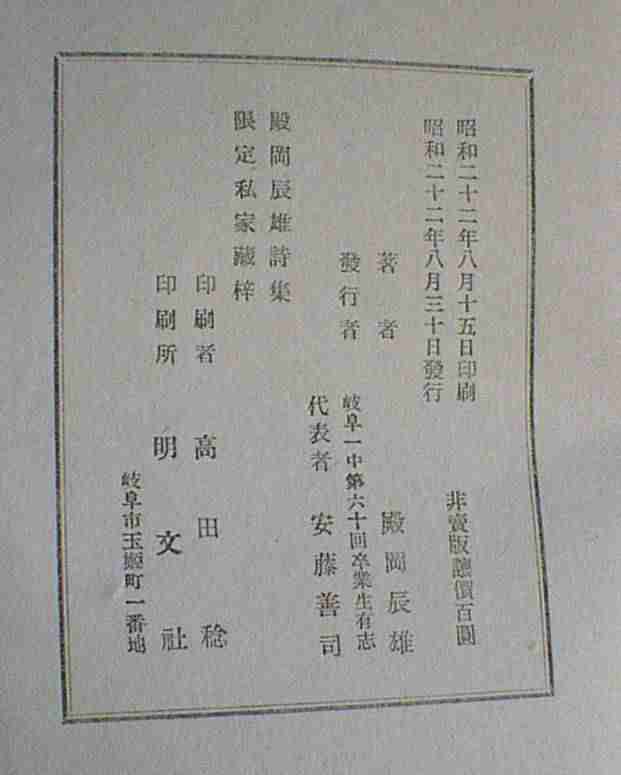 昭和二十二年八月十五日印刷
昭和二十二年八月三十日發行
非賣版讓價百圓
著者 殿岡辰雄
發行者 岐阜一中第六十回卒業生有志
代表者 安藤善司
殿岡辰雄詩集
限定私家藏梓
印刷者 高田稔
印刷所 明文社
岐阜市玉姬町一番地